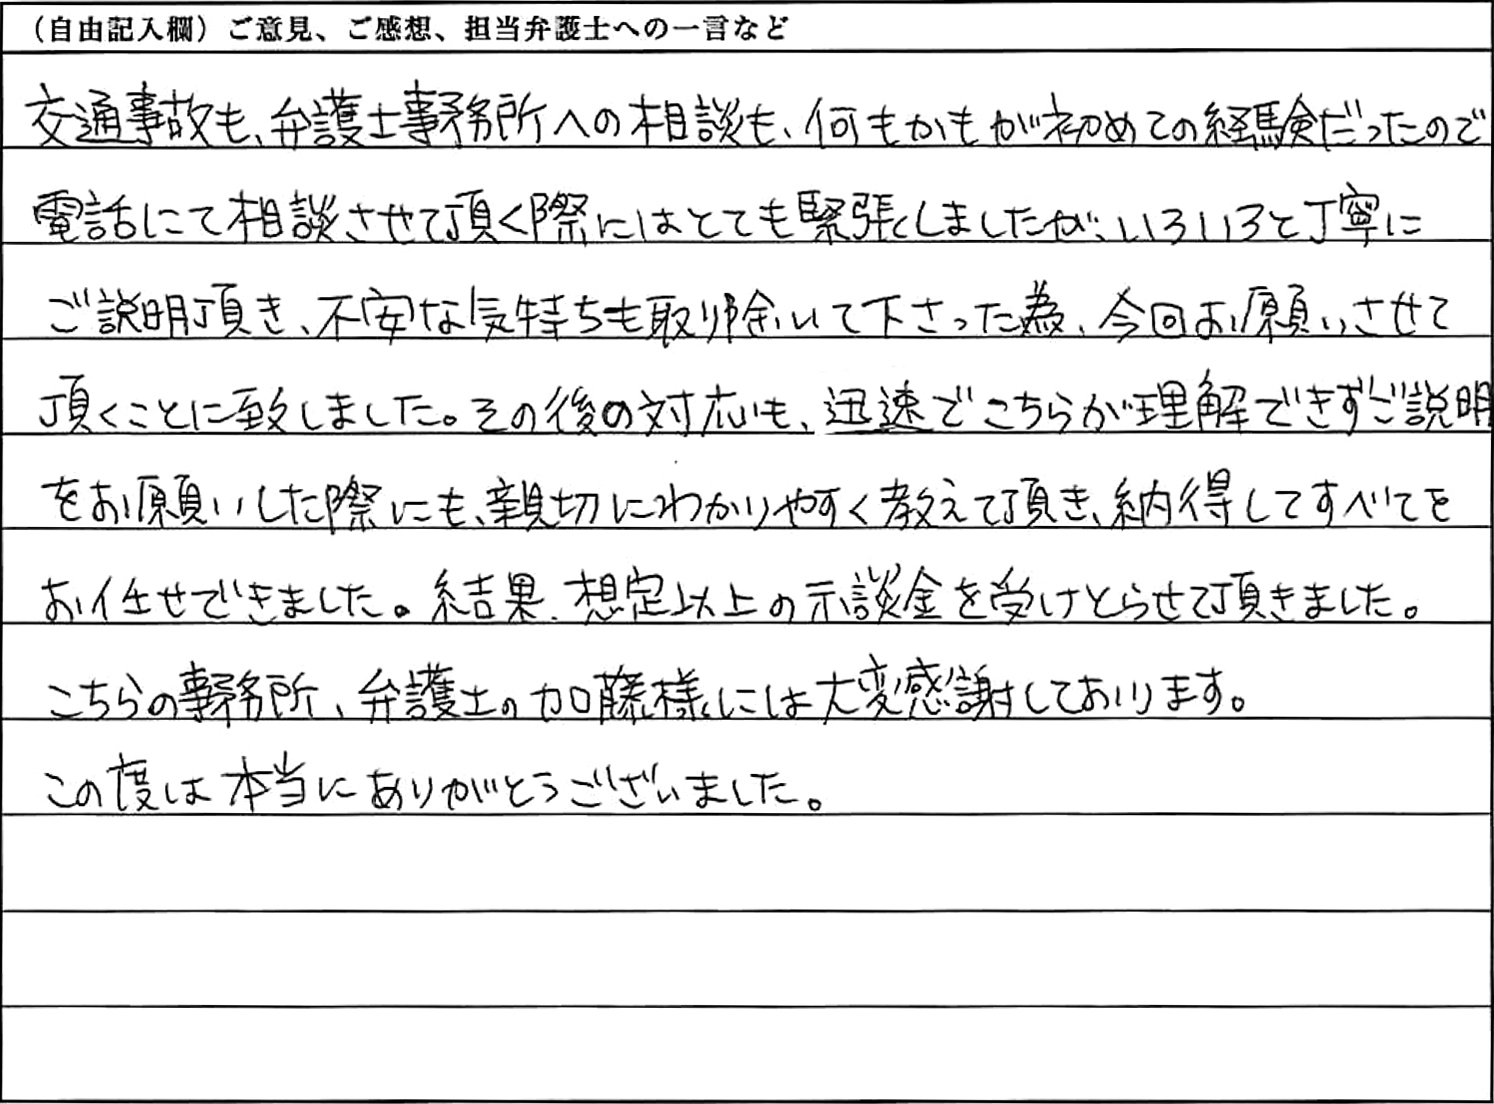 （自由記入欄）ご意見、ご感想、担当弁護士への一言など
交通事故も、弁護士事務所への相談も、何もかもが初めての経験だったので
電話にて相談させて頂く際にはとても緊張しましたが、いろいろと丁寧に
ご説明頂き、不安な気持ちも取り除いて下さった為、今回お願いさせて
頂くことに致しました。その後の対応も、迅速でこちらが理解できずご説明
をお願いした際にも、親切にわかりやすく教えて頂き、納得してすべてを
お任せできました。結果、想定以上の示談金を受けとらせて頂きました。
こちらの事務所、弁護士の加藤様には大変感謝しております。
この度は本当にありがとうございました。